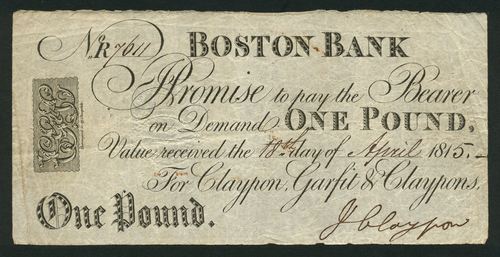 No. R7611 BOSTON BANK
I Promise to pay the Bearer
on Demand ONE POUND,
Value received the 10th day of April 1815.
For Claypon, Garfit & Claypons,
One Pound.
J Claypon